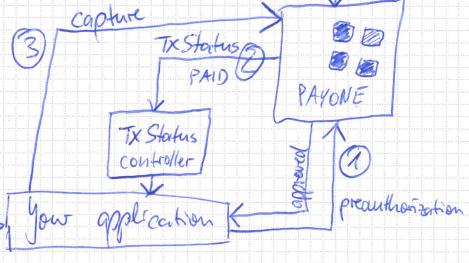 capture
3
TxStatus
2
PAID
PAYONE
TxStatus
controller
1
approved
preauthorization
Your application